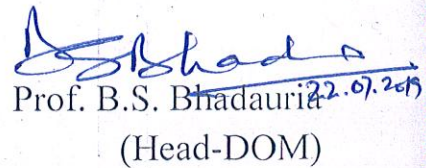 BSBhadu
Prof. B.S. Bhadauria 22.07.2019
(Head-DOM)